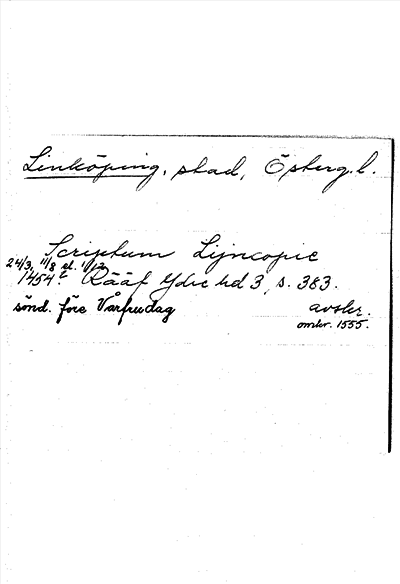 Linköping, stad, Österg. l.
Scriptum Lijncopie
24/3, 11/8 el. 1/12
1454. Rääf Ydre hd 3, s. 383.
sönd. före Vårfrudag avskr.
omkr. 1555.